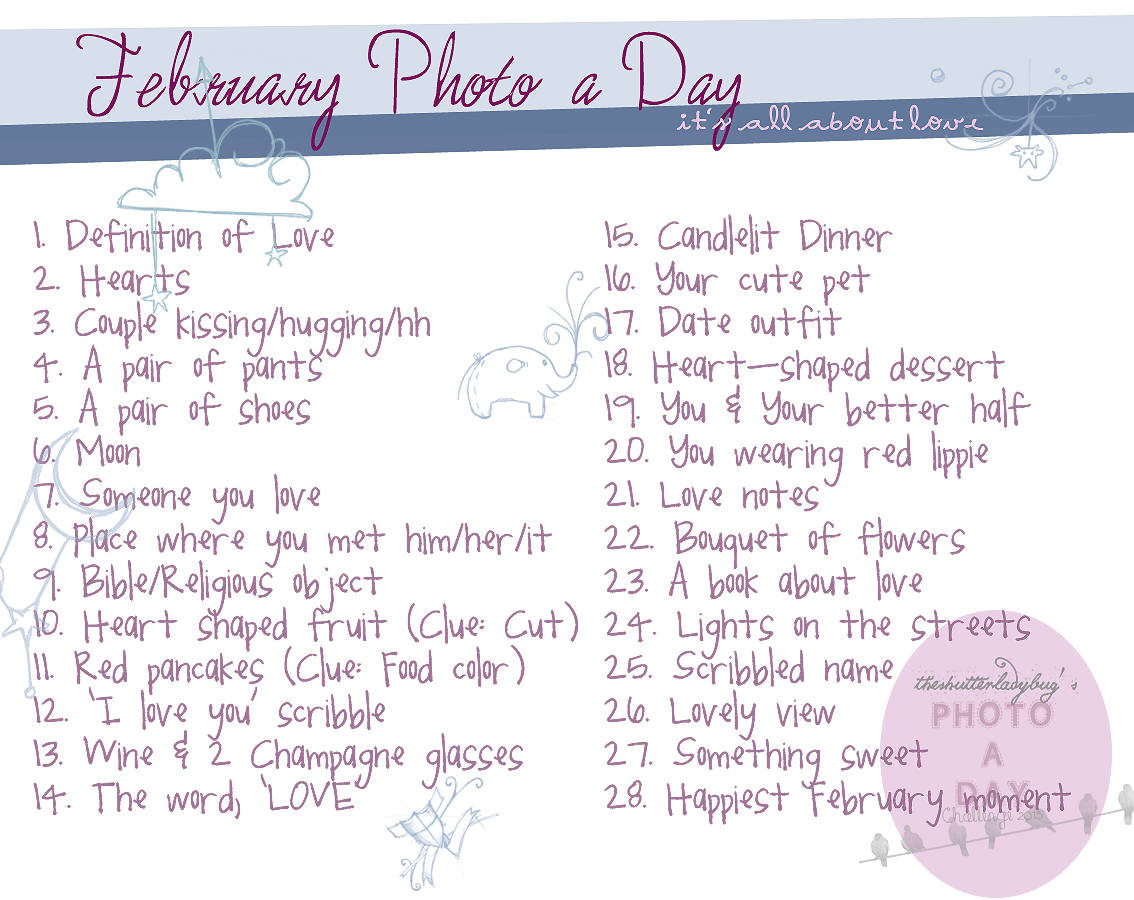 February Photo a Day
it's all about love
1. Definition of Love
2. Hearts
3. Couple kissing/hugging/hh
4. A pair of pants
5. A pair of shoes
6. Moon
7. Someone you love
8. Place where you met him/her/it
9. Bible/Religious object
10. Heart shaped fruit (Clue: Cut)
11. Red pancakes (Clue: Food color)
12. 'I love you' scribble
13. Wine & 2 Champagne glasses
14. The word, 'LOVE'
15. Candlelit Dinner
16. Your cute pet
17. Date outfit
18. Heart-shaped dessert
19. You & Your better half
20. You wearing red lippie
21. Love notes
22. Bouquet of flowers
23. A book about love
24. Lights on the streets
25. Scribbled name
26. Lovely view
27. Something sweet
28. Happiest February moment
theshutterladybug's
PHOTO
A
DAY
Challenge 2013